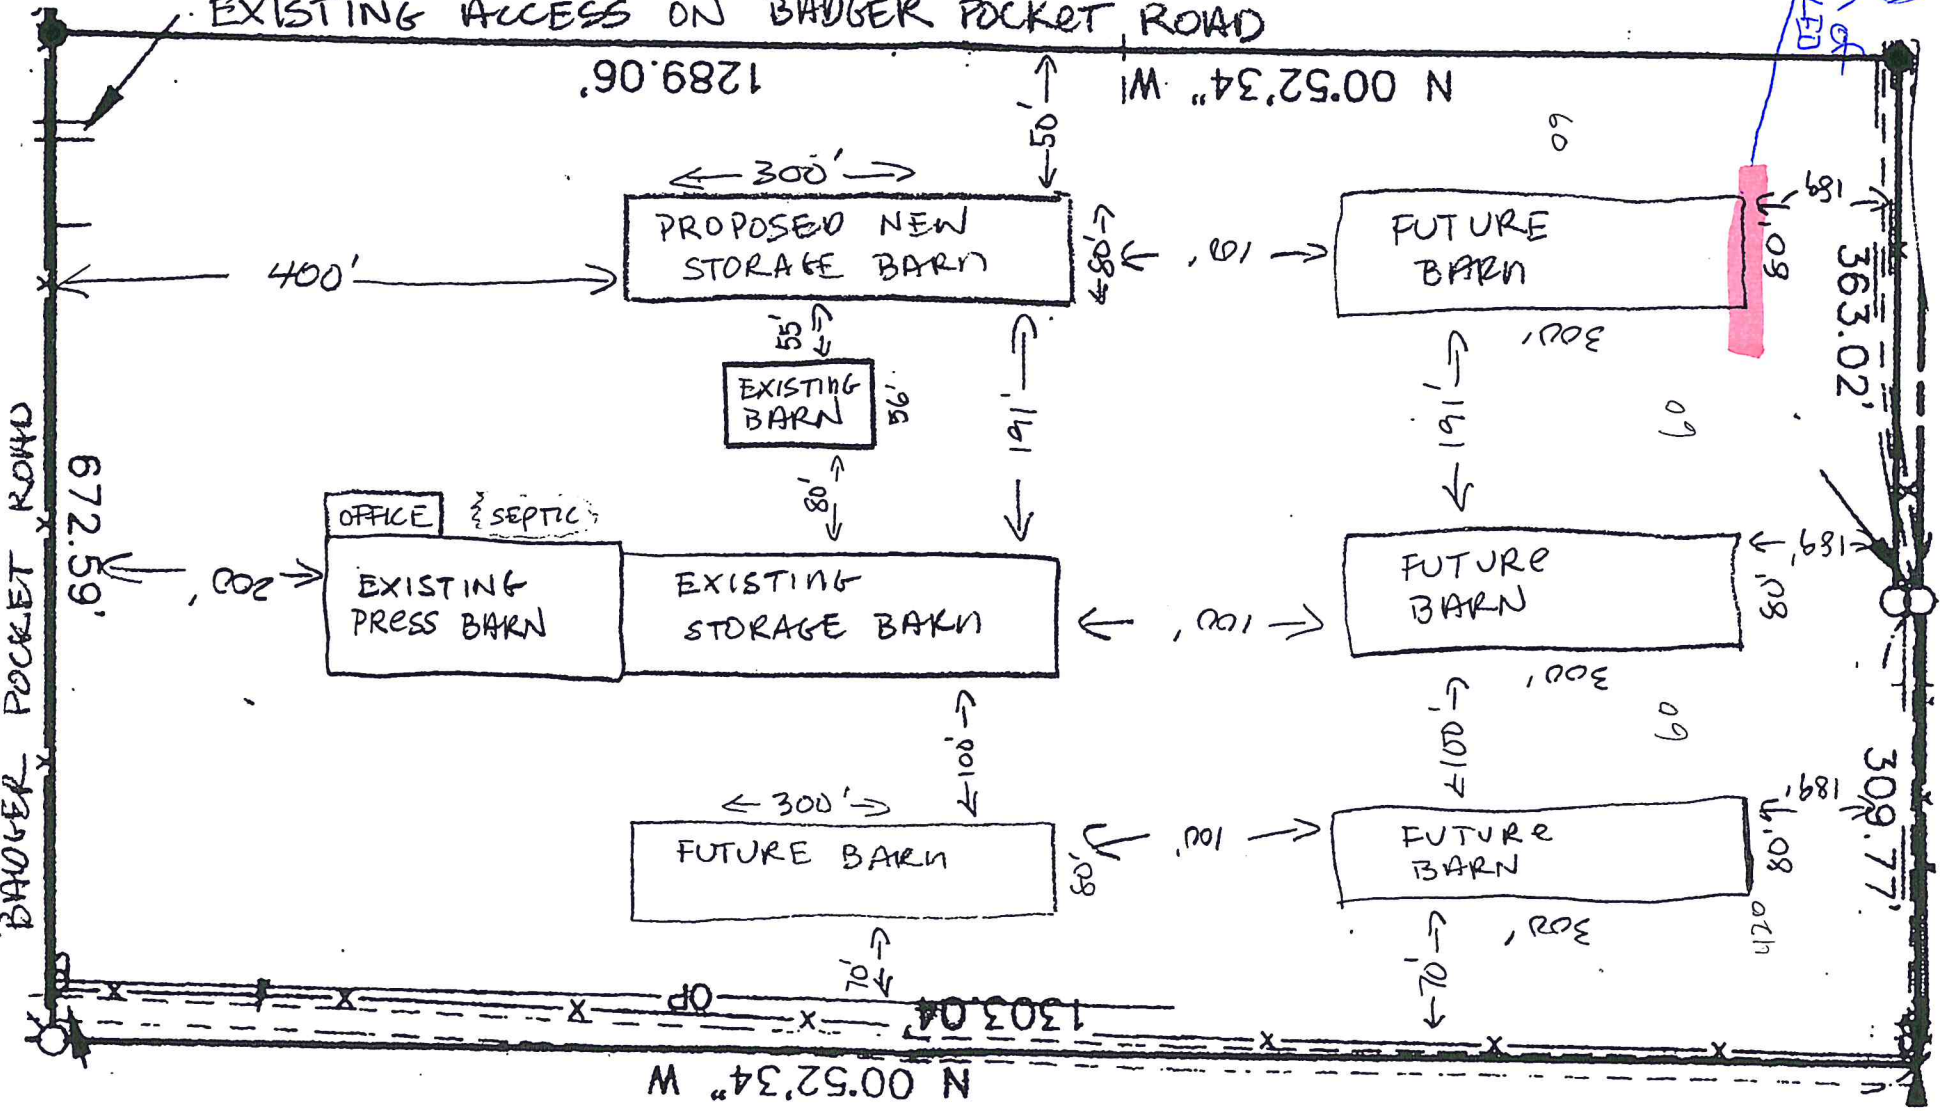 EXISTING ACCESS ON BADGER POCKET ROAD
1289.06'
N 00°52'34" W
50'
60
300'
PROPOSED NEW
STORAGE BARN
80'
100'
FUTURE
BARN
80'
189'
363.02'
300'
400'
55'
EXISTING
BARN
56'
191'
191'
60
80'
BADGER POCKET ROAD
672.59'
OFFICE
SEPTIC
200'
EXISTING
PRESS BARN
EXISTING
STORAGE BARN
100'
FUTURE
BARN
80'
189'
300'
100'
100'
60
309.77'
300'
FUTURE BARN
80'
100'
FUTURE
BARN
80'
189'
300'
420
70'
70'
OP
1303.04'
N 00°52'34" W